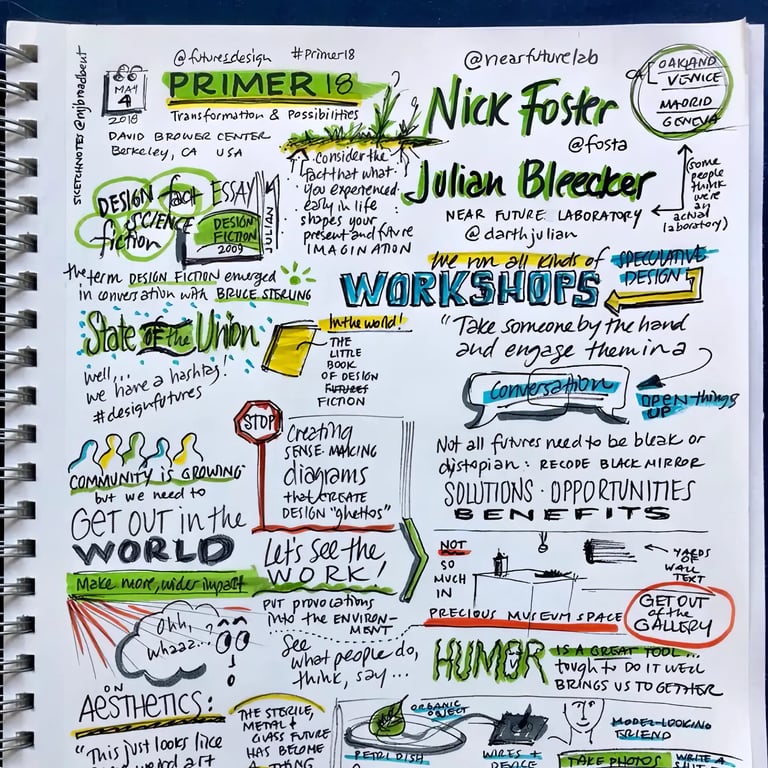 SKETCHNOTES @mjbmadbeut
@futuresdesign #Primer18
MAY
4
2018
PRIMER 18
Transformation & Possibilities
DAVID BROWER CENTER
Berkeley, CA USA
@nearfuturelab
Nick Foster
@fosta
Julian Bleecker
NEAR FUTURE LABORATORY
@darthjulian
OAKLAND
VENICE
MADRID
GENEVA
(some
people
think
we're
an
actual
laboratory)
consider the
fact that what
you experienced
early in life
shapes your
present and future
IMAGINATION
DESIGN fact ESSAY
SCIENCE
fiction
DESIGN
FICTION
2009
JULIAN
the term DESIGN FICTION emerged
in conversation with BRUCE STERLING
We run all kinds of SPECULATIVE
DESIGN
WORKSHOPS
"Take someone by the hand
and engage them in a
conversation
OPEN things
UP
State OF the Union
well,...
we have a hashtag!
#designfutures
In the world!
THE
LITTLE
BOOK
OF DESIGN
FUTURES
FICTION
Not all futures need to be bleak or
dystopian: RECODE BLACK MIRROR
SOLUTIONS · OPPORTUNITIES
BENEFITS
COMMUNITY IS GROWING
but we need to
GET OUT in the
WORLD
Make more, wider impact
STOP
Creating
SENSE-MAKING
diagrams
that CREATE
DESIGN "ghettos"
Let's see the
WORK!
put provocations
into the ENVIRON-
MENT
See
what people do,
think, say...
NOT
SO
MUCH
IN
PRECIOUS MUSEUM SPACE
YARDS
OF
WALL
TEXT
GET OUT
of the
GALLERY
Ohh,
whaaz...
HUMOR IS A GREAT TOOL...
tough to DO IT WELL
BRINGS US TOGETHER
ON
AESTHETICS:
"This just looks like
THE STERILE,
METAL &
GLASS FUTURE
HAS BECOME
ORGANIC
OBJECT
PETRI DISH
WIRES +
DEVICE
MODEL-LOOKING
FRIEND
TAKE PHOTOS
WRITE A